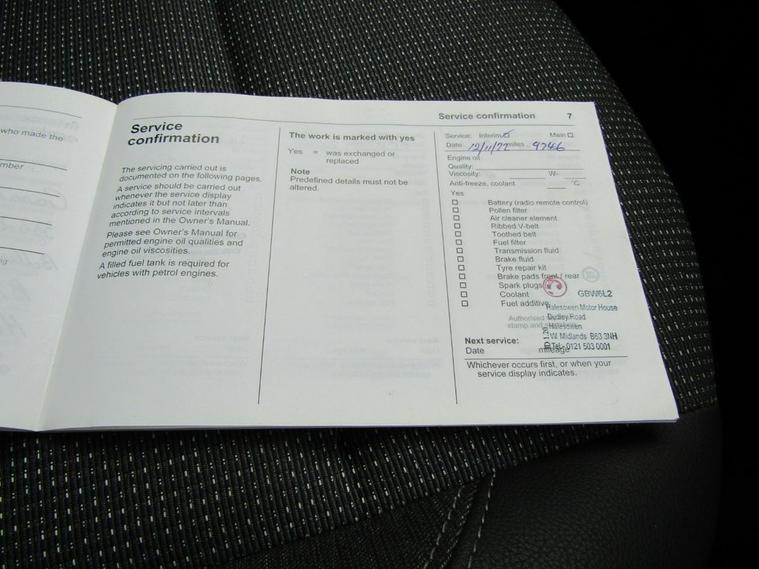 who made the
mber
Service
confirmation
The servicing carried out is
documented on the following pages.
A service should be carried out
whenever the service display
indicates it but not later than
according to service intervals
mentioned in the Owner's Manual.
Please see Owner's Manual for
permitted engine oil qualities and
engine oil viscosities.
A filled fuel tank is required for
vehicles with petrol engines.
The work is marked with yes
Yes = was exchanged or
replaced
Note
Predefined details must not be
altered.
Service confirmation 7
Service: Interim Main
Date 12/11/22 miles 9746
Engine oil
Quality:
Viscosity: W-
Anti-freeze, coolant °C
Yes
Battery (radio remote control)
Pollen filter
Air cleaner element
Ribbed V-belt
Toothed belt
Fuel filter
Transmission fluid
Brake fluid
Tyre repair kit
Brake pads front / rear
Spark plugs
Coolant GBW6L2
Fuel additive Halesowen Motor House
Authorised Dudley Road
stamp and Halesowen
W. Midlands B63 3NH
Next service: Tel: 0121 503 0001
Date mileage
Whichever occurs first, or when your
service display indicates.